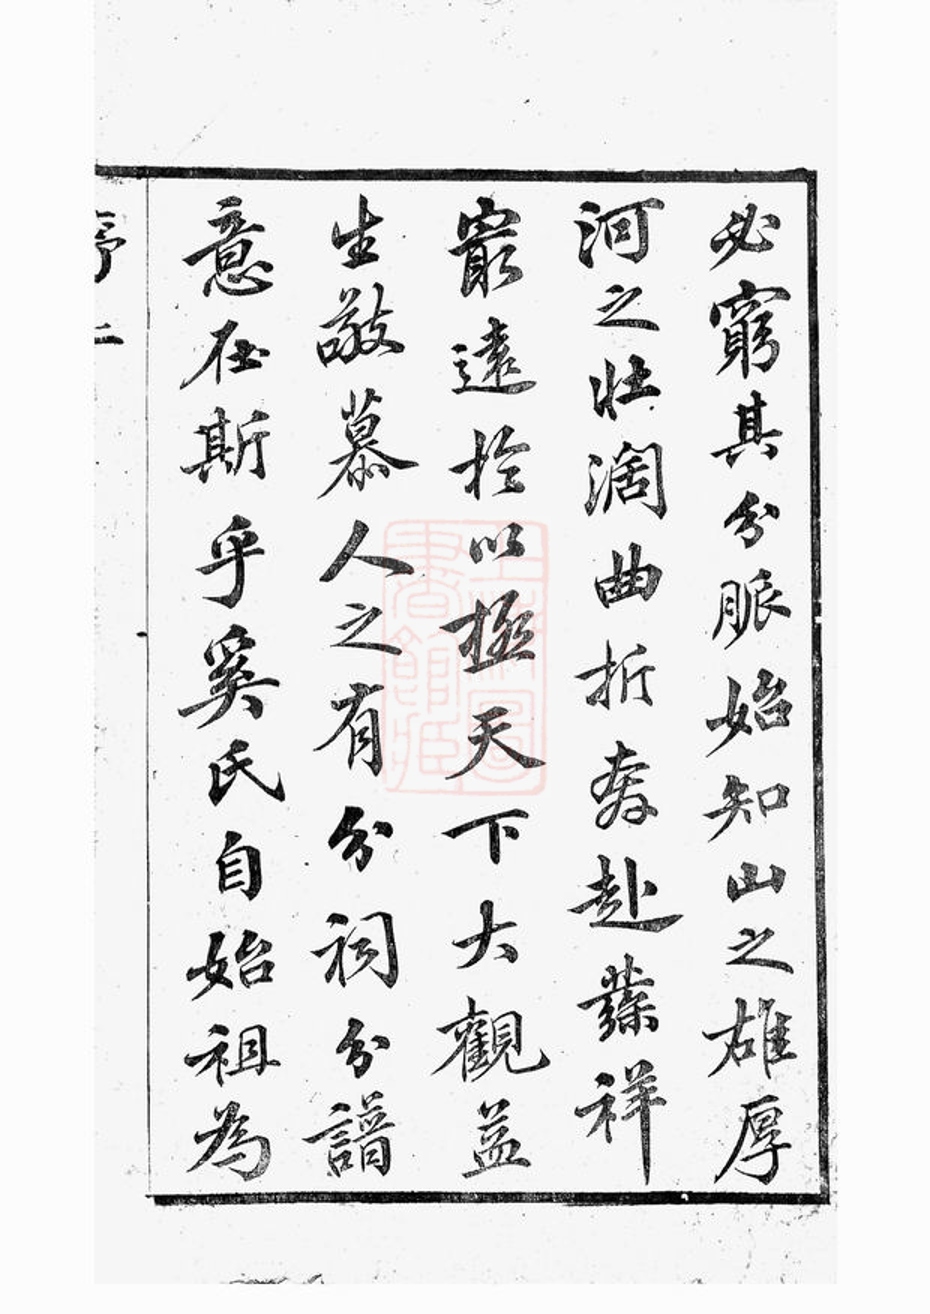 必窮其分脈始知山之雄厚
河之壯濶曲折奔赴祥
㝡遠於以極天下大觀益
生敬慕人之有分祠分譜
意在斯乎奚氏自始祖為
序 二
上海圖書館藏